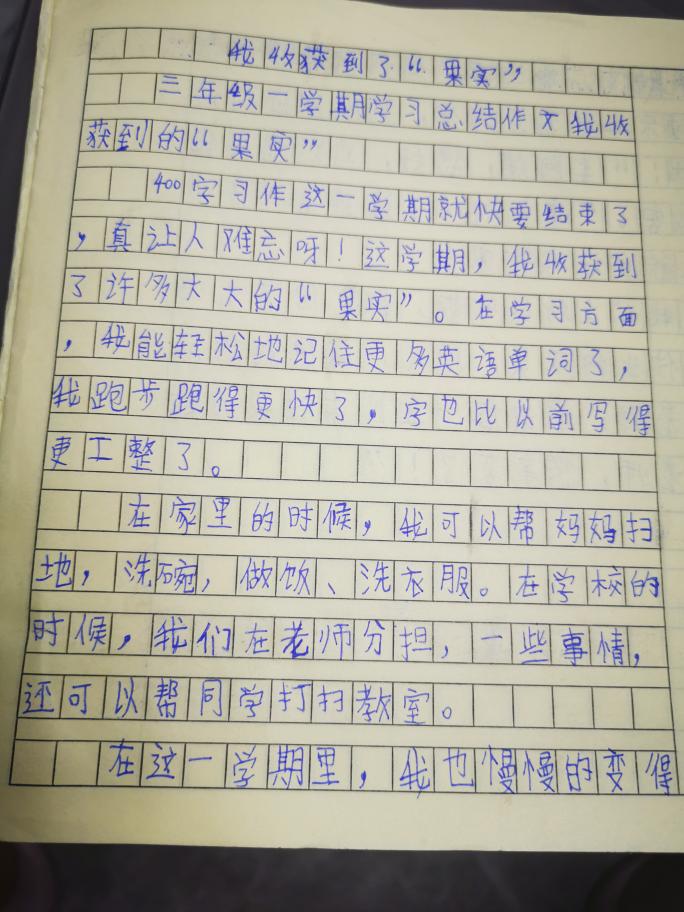 我收获到了“果实”
三年级一学期学习总结作文我收
获到的“果实”
400字习作这一学期就快要结束了
，真让人难忘呀！这学期，我收获到
了许多大大的“果实”。在学习方面
，我能轻松地记住更多英语单词了，
我跑步跑得更快了，字也比以前写得
更工整了。
在家里的时候，我可以帮妈妈扫
地，洗碗，做饭、洗衣服。在学校的
时候，我们在老师分担，一些事情，
还可以帮同学打扫教室。
在这一学期里，我也慢慢的变得